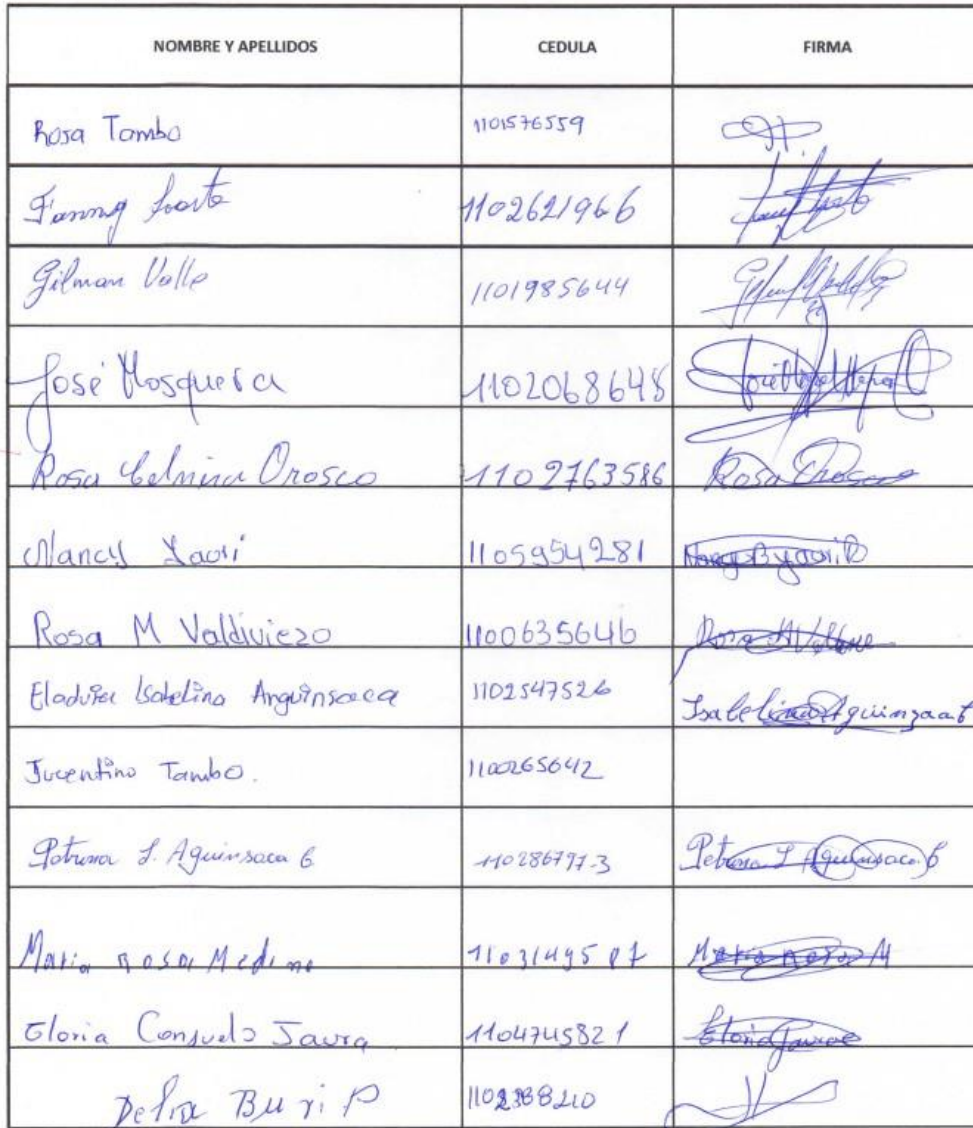 NOMBRE Y APELLIDOS CEDULA FIRMA
Rosa Tambo 1101576559
Fanny 1102621966
Gilman Valle 1101985644
José Mosquera 1102068648
Rosa Celmira Orosco 1102763586 Rosa Orosco
Nancy Yaori 1105954281
Rosa M Valdiviezo 1100635646
Eladvia Isabelina Anguinsaca 1102547526 Isabelina
Jucentino Tambo. 1100265642
Petrona L. Aguinsaca G 110286797-3 Petrona L Aguinsaca G
Maria Rosa Medina 1103149507 Maria Rosa M
Gloria Consuelo Jaura 1104745821 Gloria
Delia Buri P